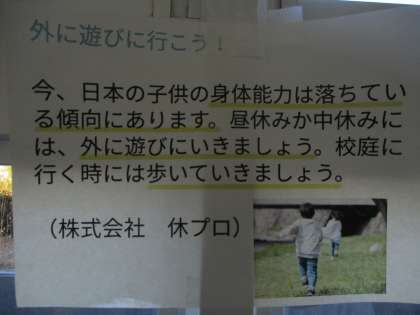 外に遊びに行こう！
今、日本の子供の身体能力は落ちてい
る傾向にあります。昼休みか中休みに
は、外に遊びにいきましょう。校庭に
行く時には歩いていきましょう。
（株式会社　休プロ）